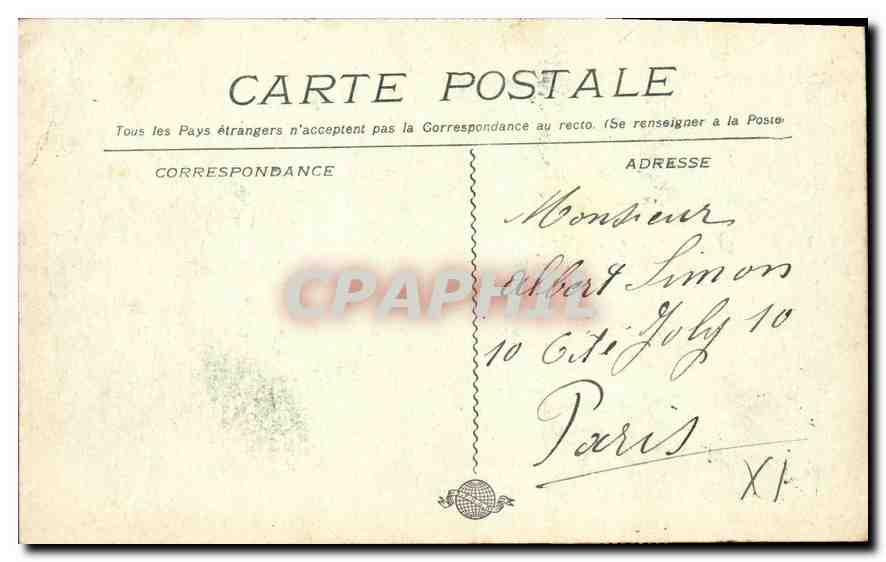 CARTE POSTALE
Tous les Pays étrangers n'acceptent pas la Correspondance au recto. (Se renseigner a la Poste)
CORRESPONDANCE
ADRESSE
Monsieur
Albert Simon
10 Cité Joly 10
Paris
XI
CPAPHIL